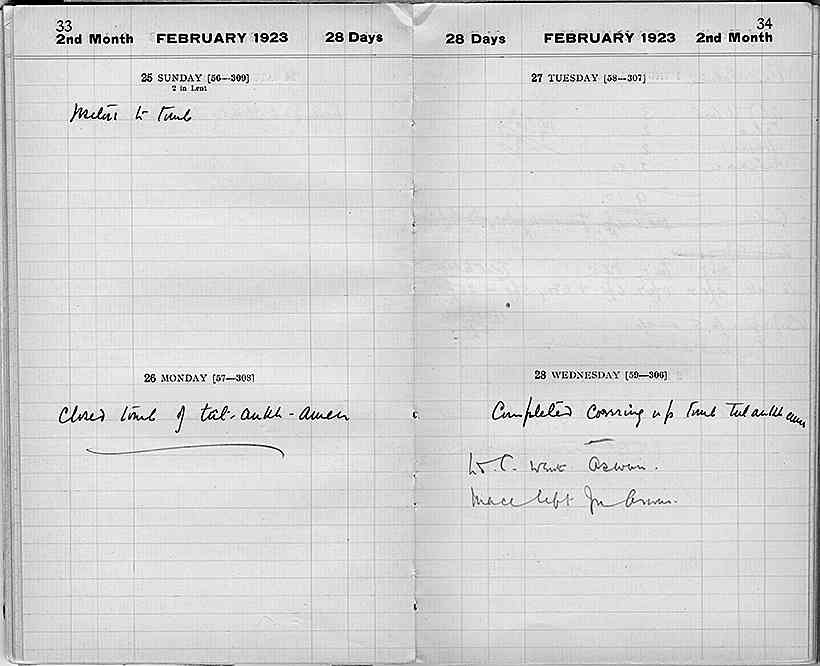 33
2nd Month FEBRUARY 1923 28 Days
25 SUNDAY [56—309]
2 in Lent
Visitors to Tomb
26 MONDAY [57—308]
Closed tomb of tut-ankh-amen
34
28 Days FEBRUARY 1923 2nd Month
27 TUESDAY [58—307]
28 WEDNESDAY [59—306]
Completed covering up tomb Tutankhamen
Ld. C. went Aswan.
Mace left for Aswan.